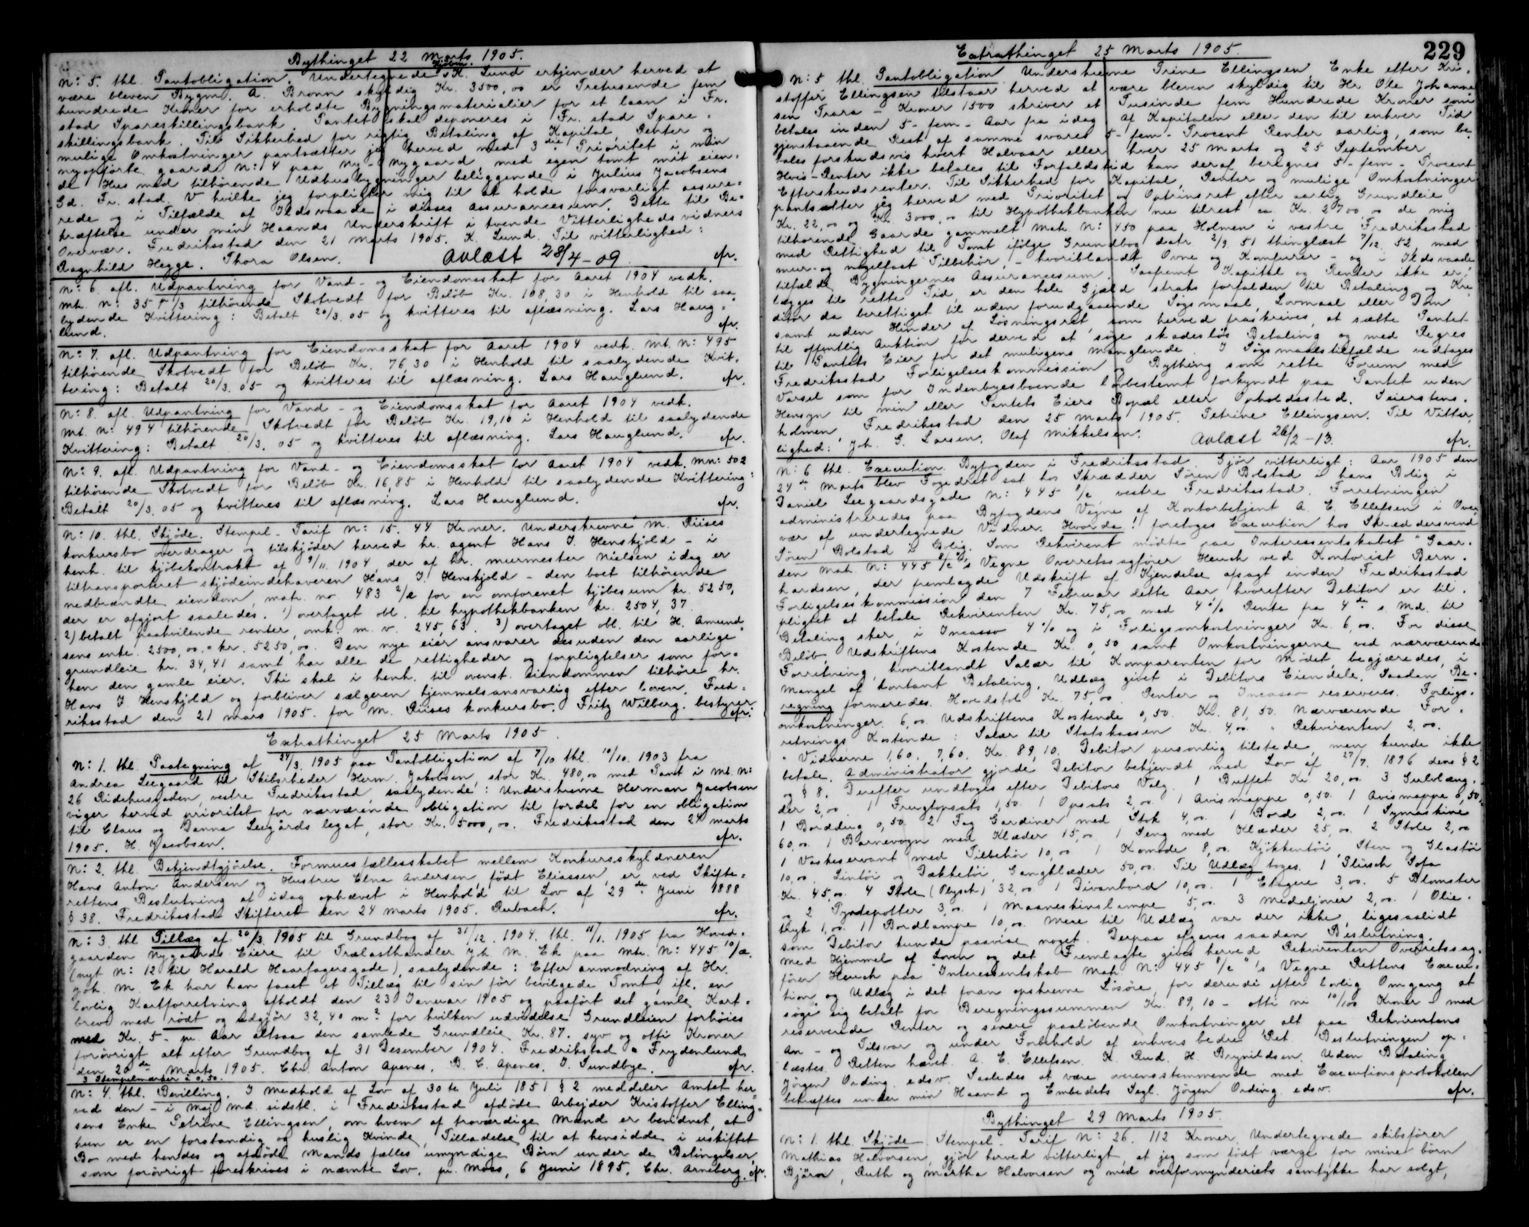 Bythinget 22 Marts 1905.
N: 5. thl. Pantobligation. Undertegnede K. Lund erkjender herved at
være bleven Bygm. A. Bronn skyldig Kr. 3500,00 er Tretusende fem
hundrede Kroner for erholdte Bygningsmaterialier for et laan i Fr.
stad Spareskillingsbank. Pantet skal deponeres i Fr. stad Spare-
skillingsbank. Til Sikkerhed for rigtig Betaling af Kapital, Renter og
mulige Omkostninger pantsætter jeg herved med 3die Prioritet i min
nyopførte gaard N: 4 paa Ny-nygaard, med egen tomt mit eien-
de Hus med tilhørende Udhusbygninger beliggende i Julius Jacobsens
Gd. Fr. stad, hvilke jeg forpligter mig til at holde forsvarligt assure-
rede og i Tilfælde af Ildsvaade i disses Assurancesum. Dette til Be-
kræftelse under min Haands Underskrift i tvende Vitterligheds vidners
Overvær. Fredriksstad den 21 Marts 1905. K Lund. Til vitterlighed:
Ragnhild Hegge. Thora Olsen. Avlæst 28/4-09 efr.
N: 6. afl. Udpantning for Vand- og Eiendomsskat for Aaret 1904 vedk.
mt. N: 35 tilhørende Skotvedt for Beløb Kr. 108,30 i Henhold til saa-
lydende Kvittering: Betalt 20/3. 05 og kvitteres til aflæsning. Lars Haug-
lund. efr.
N: 7. afl. Udpantning for Eiendomsskat for Aaret 1904 vedk. mt. N: 495
tilhørende Skotvedt for Beløb Kr. 76,30 i Henhold til saalydende Kvit-
tering: Betalt 20/3. 05 og kvitteres til aflæsning. Lars Hauglund. efr.
N: 8. afl. Udpantning for Vand- og Eiendomsskat for Aaret 1904 vedk.
Mt. N: 494 tilhørende Skotvedt for Beløb Kr. 19,10 i Henhold til saalydende
Kvittering: Betalt 20/3. 05 og kvitteres til aflæsning. Lars Hauglund. efr.
N: 9. afl. Udpantning for Vand- og Eiendomsskat for Aaret 1904 vedk. MN: 502
tilhørende Skotvedt for Beløb Kr. 16,85 i Henhold til saalydende Kvittering:
Betalt 20/3. 05 og kvitteres til aflæsning. Lars Hauglund. efr.
N: 10. thl. Skjøde. Stempel-Tarif N: 15. 44 Kroner. Underskrevne M. Riises
konkursbo overdrager og tilskjøder herved hr. agent Hans J. Henskjold - i
henh. til kjøbekontrakt af 9/11. 1904, der af hr. murmester Nielsen idag er
tiltransporteret skjødeindehaveren Hans J. Henskjold - den boet tilhørende
nedbrændte eiendom, mat. no 483 for en omforenet kjøbesum kr. 5250,
der er afgjort saaledes. 1) overtaget obl. til hypothekbanken kr. 2504,37
2) betalt paahvilende renter, omk. m. v. 245,63. 3) overtaget obl. til H. Amund-
sens enke. 2500,00 = kr. 5250,00. Den nye eier ansvarer desuden den aarlige
grundleie kr. 34,41 samt har alle de rettigheder og forpligtelser som for-
hen den gamle eier. Thi skal i henh. til ovenst. Eiendommen tilhøre hr.
Hans J Henskjold og forbliver sælgeren hjemmelsansvarlig efter loven. Fred-
riksstad den 21 mars 1905. for M. Riises konkursbo, Fritz Wilberg. bestyrer. efr.
Extrathinget 25 Marts 1905.
N: 1. thl. Paategning af 24/3. 1905 paa Pantobligation af 7/10 thl. 10/10. 1903 fra
Andrea Seegaard til Skibsreder Herm. Jakobsen, stor Kr. 480,00 med Pant i Mt. N:
26 Ridehusgaden, vestre Fredriksstad saalydende: Underskrevne Herman Jacobsen
viger herved prioritet for nærværende obligation til fordel for en obligation
til Claus og Danna Seegårds legat, stor Kr. 5000,00. Fredriksstad den 24 marts
1905. H Jacobsen. efr.
N: 2. thl. Bekjendtgjørelse. Formuesfællesskabet mellem Konkursskyldneren
Hans Anton Andersen og Hustru Elna Andersen født Eliassen er ved Skifte-
rettens Beslutning af idag ophævet i Henhold til Lov af 29de Juni 1888
§ 38. Fredriksstads Skifteret den 24 Marts 1905. Rubach. efr.
N: 3. thl Tillæg af 20/3. 1905 til Grundbog af 31/12. 1904. thl. 11/1. 1905 fra Hoved-
gaarden Nygaards Eiere til Trælasthandler Joh. M. Ek paa Mt. N: 445
(nyt N: 12 til Harald Haarfagersgade), saalydende: Efter anmodning af Hr.
Joh. M. Ek har han faaet et Tillæg til sin før bevilgede Tomt ifl. en
lovlig Kartforretning afholdt den 23 Januar 1905 og paaført det gamle Kart-
brev med rødt og udgjør 32,40 m² for hvilken udvidelse Grundleien forhøies
med Kr. 5- pr. Aar altsaa den samlede Grundleie Kr. 87. syv og otti Kroner
forøvrigt alt efter Grundbog af 31 Desember 1904. Fredrikstad & Frydenlund
den 20de Marts 1905. Chr. Anton Apenes. B. C. Apenes. J. Sundbye. efr.
3 Stempelmærker à 0,50.
N: 4. thl. Bevilling. I medhold af Lov af 30te Juli 1851 § 2 meddeler Amtet her-
ved den - i Maj md. sidstl. i Fredriksstad afdøde Arbejder Kristoffer Elling-
sens Enke Petrine Ellingsen, om hvem af troværdige Mænd er bevidnet, at
hun er en forstandig og huslig Kvinde, Tilladelse til at hensidde i uskiftet
Bo med hendes og afdøde Mands fælles umyndige Børn under de Betingelser,
som forøvrigt foreskrives i nævnte Lov. pr. Moss, 6 Juni 1895, Chr. Arneberg. efr.
229
Extrathinget 25 Marts 1905.
N: 5 thl. Pantobligation Underskrevne Trine Ellingsen, Enke efter Kri-
stoffer Ellingsen tilstaar herved at være bleven skyldig til Hr. Ole Johanne-
sen Trara - Kroner 1500 skriver et Tusinde fem Hundrede Kroner som
betales inden 5-fem-Aar fra idag Af Kapitalen eller den til enhver Tid
gjenstaaende Rest af samme svares 5-fem-Procent Renter aarlig, som be-
tales forskudsvis hvert Halvaar eller hver 25 Marts og 25 September.
Hvis Renter ikke betales til Forfaldstid kan deraf beregnes 5-fem-Procent
Efterskudsrenter. Til Sikkerhed for Kapital, Renter og mulige Omkostninger
pantsætter jeg herved med Prioritet og Optrinsret efter aarlig Grundleie
Kr. 22,00 og Kr 3000,00 til Hypothekbanken nu tilrest ca Kr. 2700,00 de mig
tilhørende Gaarde gammelt Mat N: 450 paa Holmen i vestre Fredriksstad
med Rettighed til Tomt ifølge Grundbog datr 2/9 51 thinglæst 7/12. 52, med
mur- og nagelfast Tilbehør, - hvoriblandt Ovne og Komfurer - og i Ildsvaade
tilfælde Bygningernes Assurancesum. Saafremt Kapital og Renter ikke er-
lægges til rette Tid, er den hele Gjæld straks forfalden til Betaling og Kre-
ditor da berettiget til, uden forudgaaende Søgsmaal, Lovmaal eller Dom
samt uden Hinder af Løsningsret, som herved fraskrives, at sætte Pantet
til offentlig Auktion for derved at søge skadesløs Betaling og med Regres
til Pantets Eier for det muligens manglende. I Søgsmaalstilfælde vedtages
Fredriksstad Forligelseskommission og Bything som rette Forum med
Varsel som for Indenbyesboende lovbestemt forkyndt paa Pantet uden
Hensyn til min eller Pantets Eiers Bopæl eller Opholdssted. Seierstens-
holmen Fredriksstad den 25 Marts 1905. Petrine Ellingsen. Til Vitter-
lighed: Joh. S. Larsen. Olaf Mikkelsen. Avlæst 26/2-13. efr.
N: 6 thl. Execution. Byfogden i Fredriksstad Gjør vitterligt: Aar 1905 den
24de Marts blev Fogedret sat hos Skrædder Søren Bolstad i hans Bolig i
Daniel Leegaardsgade N: 445 vestre Fredriksstad. Forretningen
administreredes paa Byfogdens Vegne af Kontorbetjent A. E. Ellefsen i Over-
vær af undertegnede Vidner. Hvorda! foretoges Execution hos Skræddersvend
Søren Bolstad i Bolig. Som Rekvirent mødte paa Interessentskabet "Gaar-
den Mat N: 445"s Vegne Overretssagfører Heuch ved Kontorist Bern-
hardsen, der fremlagde Udskrift af Kjendelse afsagt inden Fredriksstad
Forligelseskommission den 7 Februar dette Aar, hvorefter Debitor er til-
pligtet at betale Rekvirenten Kr. 75,00 med 4% Rente fra 4de s. Md. til
Betaling sker, i Incasso 4% og i Forligsomkostninger Kr. 6,00. For disse
Beløb, Udskriftens Kostende Kr. 0,50 samt Omkostningerne ved nærværende
Forretning, hvoriblandt Salær til Komparenten for Mødet, begjæredes, i
Mangel af kontant Betaling, Udlæg givet i Debitors Eiendele. Saadan Be-
regning formeredes. Hovedstol Kr. 75,00. Renter og Incasso reserveres. Forligs-
omkostninger 6,00. Udskriftens Kostende 0,50. Kr. 81,50. Nærværende For-
retnings Kostende: Salær til Statskassen Kr. 4,00. " Rekvirenten 2,00.
" Vidnerne 1,60. 7,60. Kr. 89,10. Debitor personlig tilstede, men kunde ikke
betale. Administrator gjorde Debitor bekjendt med Lov af 27/7. 1896 dens § 2
og § 8. Derefter undtoges efter Debitors Valg. 1 Buffet Kr 20,00. 3 Gulvlæng-
der 2,00 1 Frugtopsats 1,50 1 Opsats 2,00. 1 Avismappe 0,50. 1 Avismappe 0,50.
1 Borddug 0,50. 2 Fag Gardiner med Stok 4,00. 1 Bord 2,00. 1 Symaskine
60,00. 1 Barnevogn med Klæder 15,00 1 Seng med Klæder 25,00. 2 Stole 2,00
1 Vaskeservant med Tilbehør 10,00. 1 Komode 8,00. Kjøkkentøi Sten og Glastøi
10,00. Lintøi og Dækketøi, Gangklæder 50,00. Til Udlæg toges. 1 Plüsch Sofa
Kr. 45,00. 4 Stole (Plysch) 32,00 1 Divanbord 10,00. 1 Etagere 3,00. 5 Blomster
og 2 Pyntepotter 3,00. 1 Maaneskinslampe 5,00. 3 Medaljoner 2,00. 1 Olie-
tryk 1,00. 1 Bordlampe 10,00. Mere til Udlæg var der ikke, ligesaalidt
som Debitor kunde paavise noget. Derpaa afgaves saadan Beslutning.
Med Hjemmel af Loven og det Fremlagte gives herved Rekvirenten Overretssag-
fører Heuch paa "Interessentskab Mat N: 445"s Vegne Rettens Execu-
tion og Udlæg i det foran opskrevne Løsøre, for derudi efter lovlig Omgang at
søge sig betalt for Beregningssummen Kr. 89,10 - otti ni 10/100 Kroner - med
reserverede Renter og senere paaløbende Omkostninger alt paa Rekvirentens
An- og Tilsvar og under Forbehold af enhvers bedre Ret Beslutningen op-
læstes. Retten hævet A. E. Ellefsen. K. Rud. H Brynildsen. Uden Betaling
Jørgen Ording. edsv. Saaledes at være overensstemmende med Executionsprotokollen
bekræftes under min Haand og Embedets Segl. Jørgen Ording edsv. efr.
Bythinget 29 Marts 1905.
N: 1. thl. Skjøde. Stempel-Tarif N: 26. 112 Kroner. Undertegnede skibsfører
Mathias Halvorsen, gjør herved vitterligt, at jeg som født værge for mine børn
Bjårn, Ruth og Martha Halvorsen og med overformynderiets samtykke har solgt,